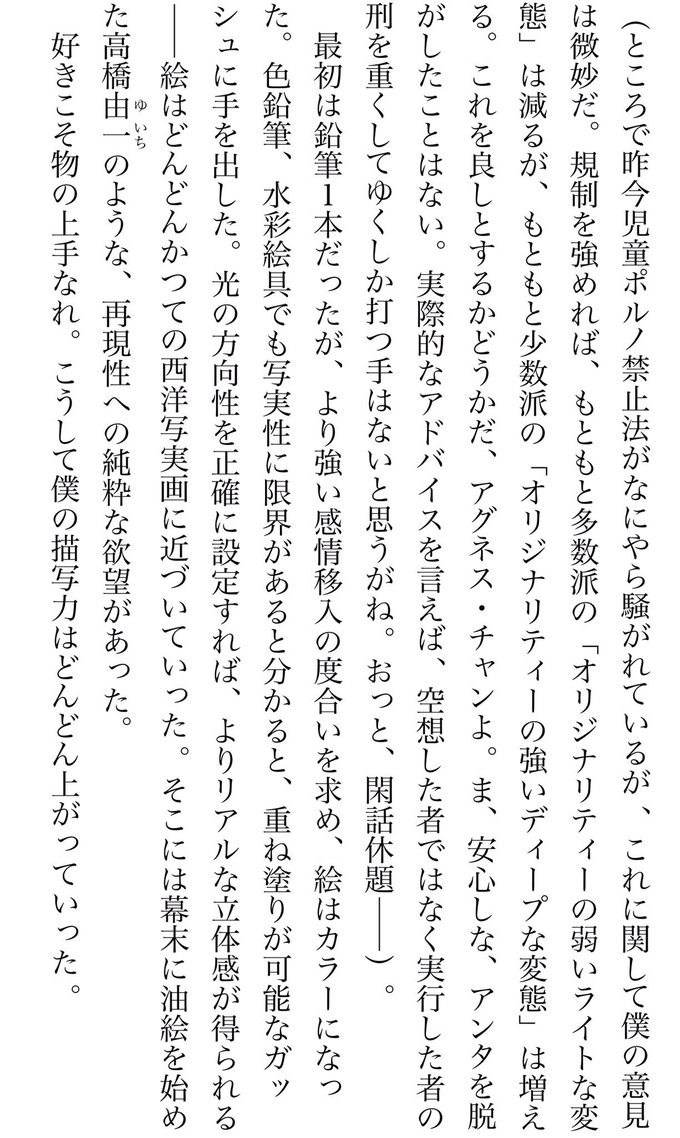 （ところで昨今児童ポルノ禁止法がなにやら騒がれているが、これに関して僕の意見
は微妙だ。規制を強めれば、もともと多数派の「オリジナリティーの弱いライトな変
態」は減るが、もともと少数派の「オリジナリティーの強いディープな変態」は増え
る。これを良しとするかどうかだ、アグネス・チャンよ。ま、安心しな、アンタを脱
がしたことはない。実際的なアドバイスを言えば、空想した者ではなく実行した者の
刑を重くしてゆくしか打つ手はないと思うがね。おっと、閑話休題――）。
最初は鉛筆1本だったが、より強い感情移入の度合いを求め、絵はカラーになっ
た。色鉛筆、水彩絵具でも写実性に限界があると分かると、重ね塗りが可能なガッ
シュに手を出した。光の方向性を正確に設定すれば、よりリアルな立体感が得られる
――絵はどんどんかつての西洋写実画に近づいていった。そこには幕末に油絵を始め
た高橋由一ゆいちのような、再現性への純粋な欲望があった。
好きこそ物の上手なれ。こうして僕の描写力はどんどん上がっていった。